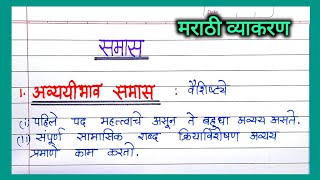 मराठी व्याकरण
समास
1. अव्ययीभाव समास : वैशिष्ट्ये
(i) पहिले पद महत्त्वाचे असून ते बहुधा अव्यय असते.
(ii) संपूर्ण सामासिक शब्द क्रियाविशेषण अव्यय
प्रमाणे काम करतो.